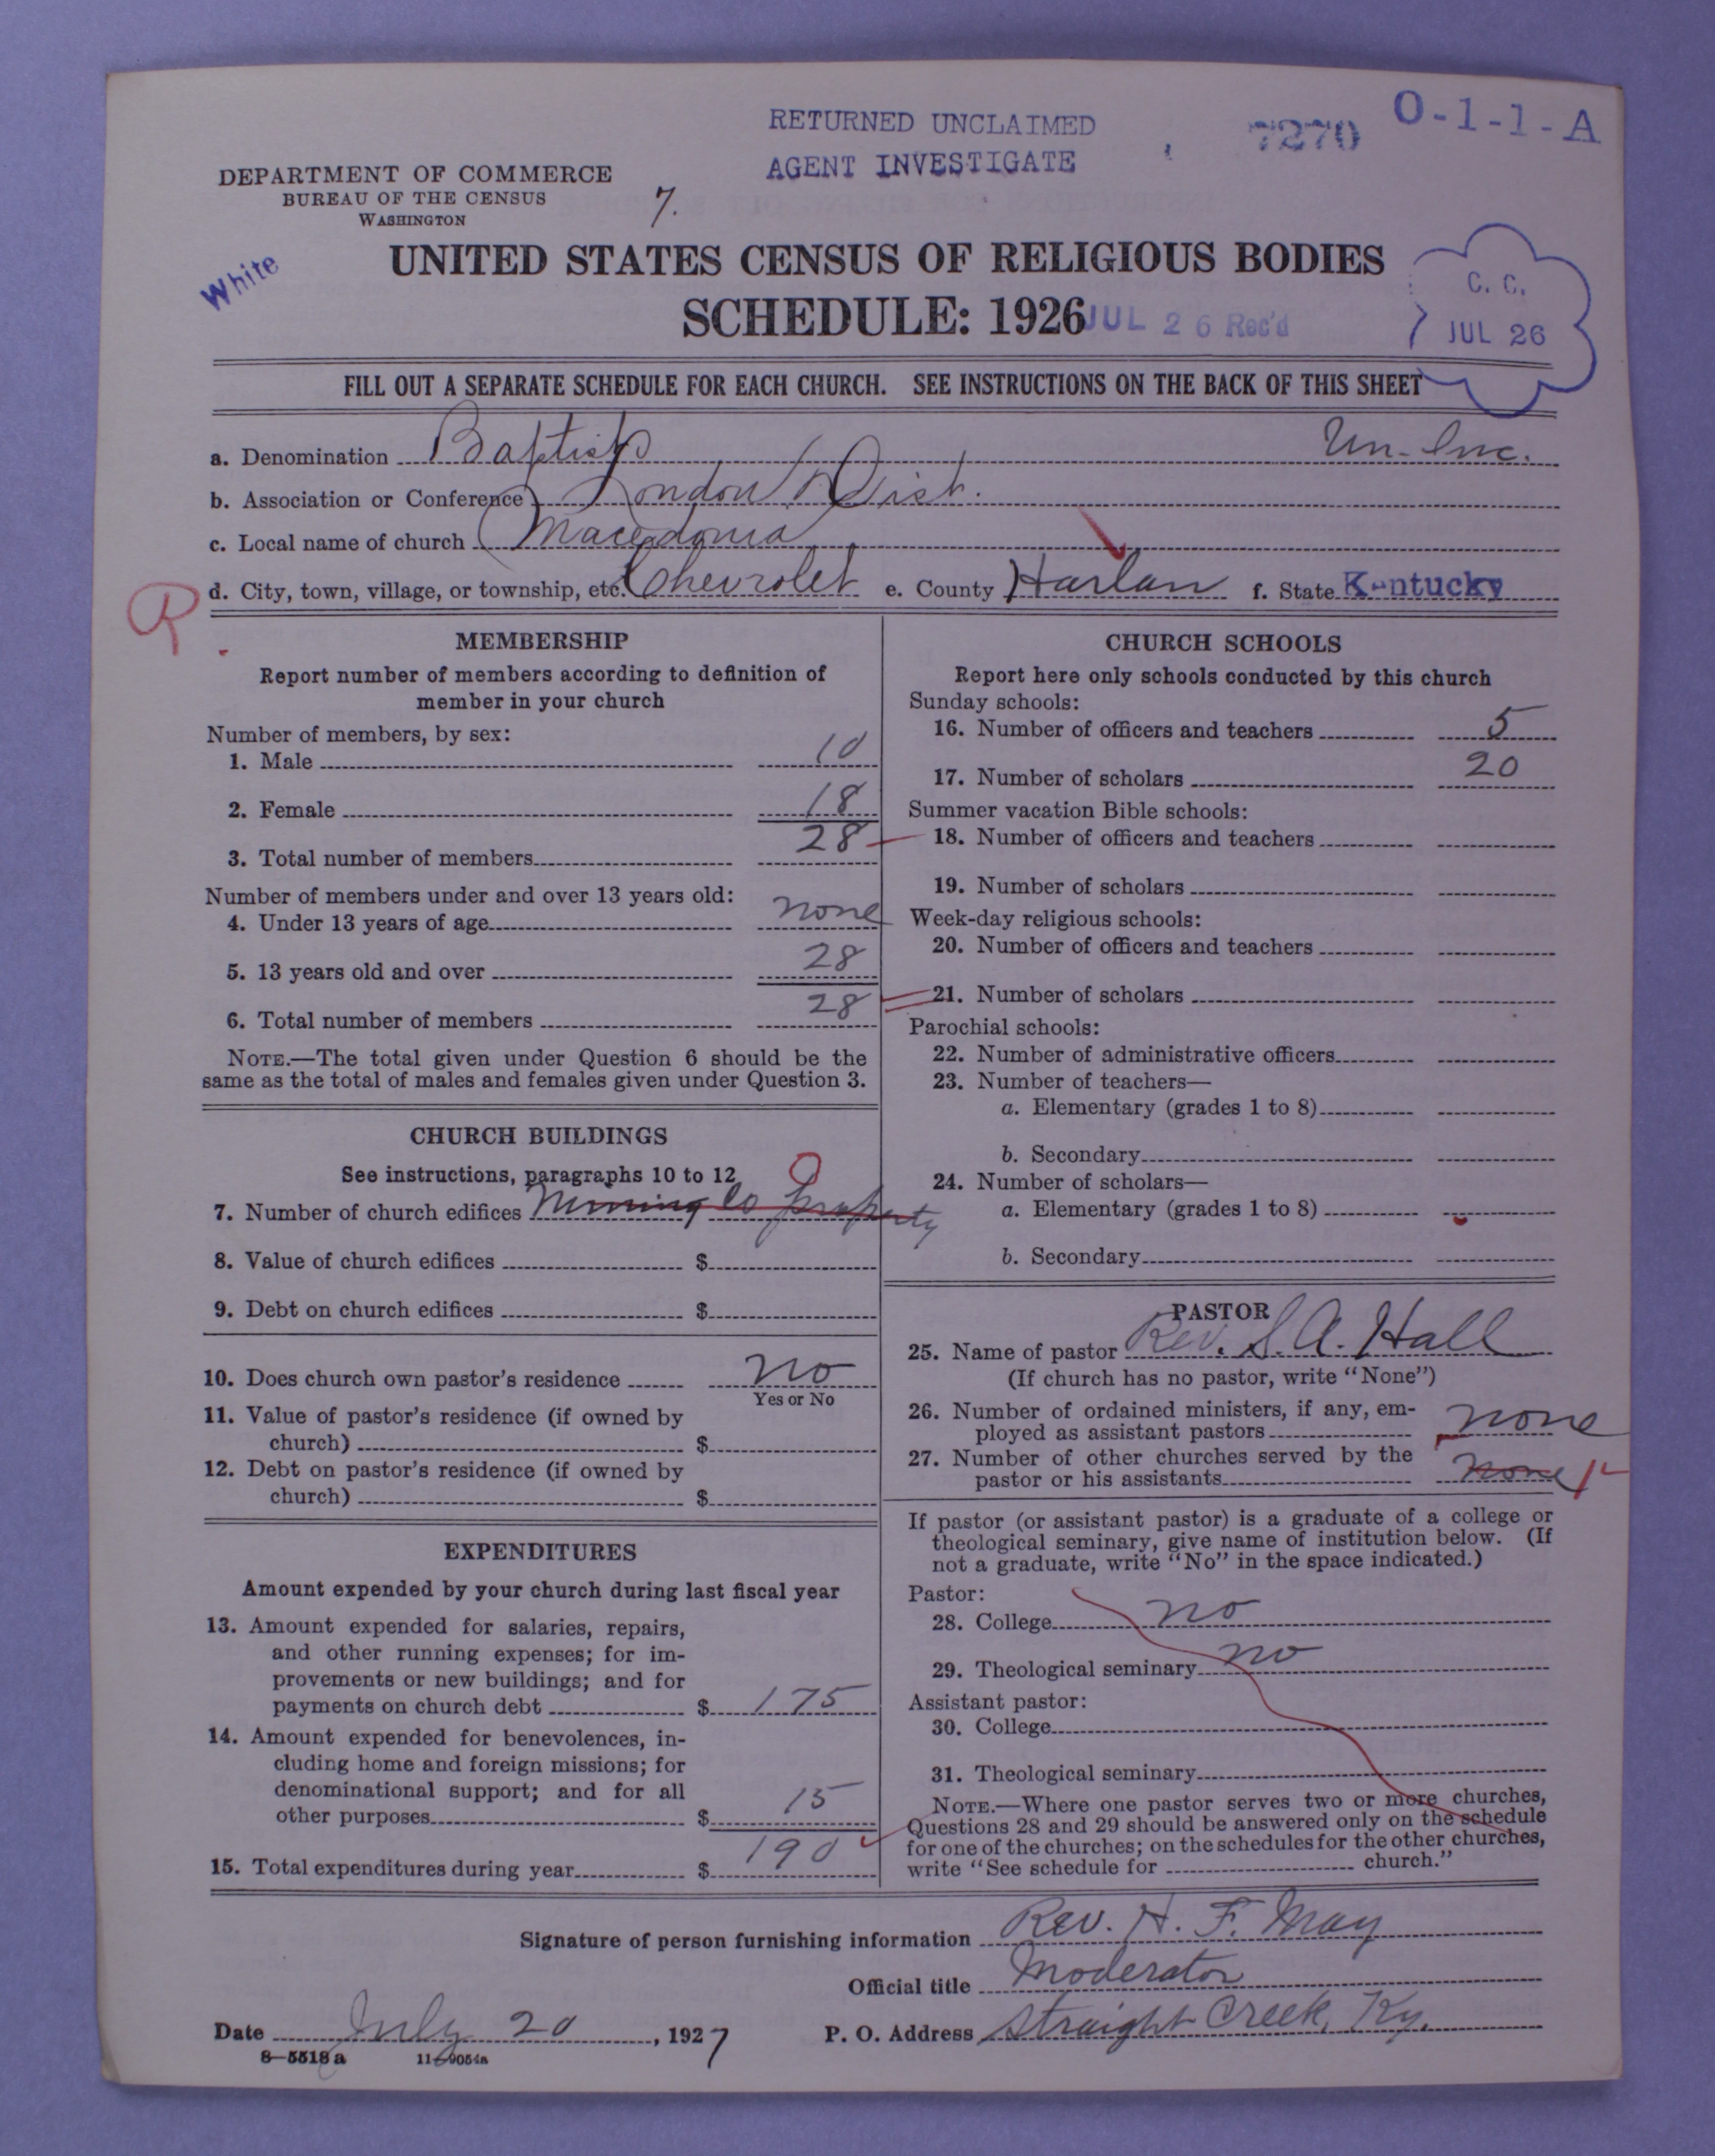 RETURNED UNCLAIMED
AGENT INVESTIGATE
7270
O-1-1-A
DEPARTMENT OF COMMERCE
BUREAU OF THE CENSUS
WASHINGTON
7.
White
UNITED STATES CENSUS OF RELIGIOUS BODIES
SCHEDULE: 1926
JUL 26 Rec'd
C. C.
JUL 26
FILL OUT A SEPARATE SCHEDULE FOR EACH CHURCH. SEE INSTRUCTIONS ON THE BACK OF THIS SHEET
a. Denomination Baptist Un-Inc.
b. Association or Conference London Dist.
c. Local name of church Macedonia
R. d. City, town, village, or township, etc. Chevrolet e. County Harlan f. State Kentucky
MEMBERSHIP
Report number of members according to definition of
member in your church
Number of members, by sex:
1. Male 10
2. Female 18
3. Total number of members 28
Number of members under and over 13 years old:
4. Under 13 years of age none
5. 13 years old and over 28
6. Total number of members 28
NOTE.—The total given under Question 6 should be the
same as the total of males and females given under Question 3.
CHURCH BUILDINGS
See instructions, paragraphs 10 to 12
7. Number of church edifices Co property
8. Value of church edifices $
9. Debt on church edifices $
10. Does church own pastor's residence no
Yes or No
11. Value of pastor's residence (if owned by
church) $
12. Debt on pastor's residence (if owned by
church) $
EXPENDITURES
Amount expended by your church during last fiscal year
13. Amount expended for salaries, repairs,
and other running expenses; for im-
provements or new buildings; and for
payments on church debt $ 175
14. Amount expended for benevolences, in-
cluding home and foreign missions; for
denominational support; and for all
other purposes $ 15
15. Total expenditures during year $ 190
CHURCH SCHOOLS
Report here only schools conducted by this church
Sunday schools:
16. Number of officers and teachers 5
17. Number of scholars 20
Summer vacation Bible schools:
18. Number of officers and teachers
19. Number of scholars
Week-day religious schools:
20. Number of officers and teachers
21. Number of scholars
Parochial schools:
22. Number of administrative officers
23. Number of teachers—
a. Elementary (grades 1 to 8)
b. Secondary
24. Number of scholars—
a. Elementary (grades 1 to 8)
b. Secondary
PASTOR
25. Name of pastor Rev. S. A. Hall
(If church has no pastor, write "None")
26. Number of ordained ministers, if any, em-
ployed as assistant pastors none
27. Number of other churches served by the
pastor or his assistants none
If pastor (or assistant pastor) is a graduate of a college or
theological seminary, give name of institution below. (If
not a graduate, write "No" in the space indicated.)
Pastor:
28. College no
29. Theological seminary no
Assistant pastor:
30. College
31. Theological seminary
NOTE.—Where one pastor serves two or more churches,
Questions 28 and 29 should be answered only on the schedule
for one of the churches; on the schedules for the other churches,
write "See schedule for church."
Signature of person furnishing information Rev. H. F. May
Official title Moderator
Date July 20, 1927 P. O. Address Straight Creek, Ky.
8—5518 a 11—9054a